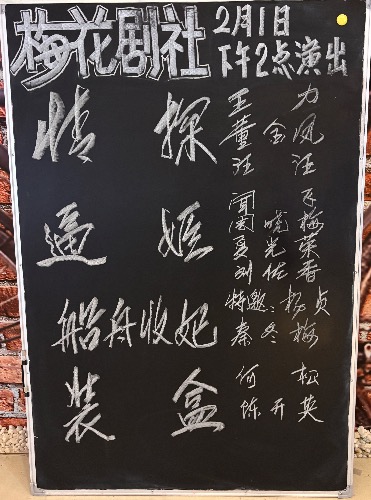 梅花剧社
2月1日
下午2点演出
情探
王力
董金凤
汪汪
逼姬
闻飞
国晓梅
夏光荣
刘佐香
船舟收妃
特邀：杨贞
秦冬梅
装盒
何松
陈开英